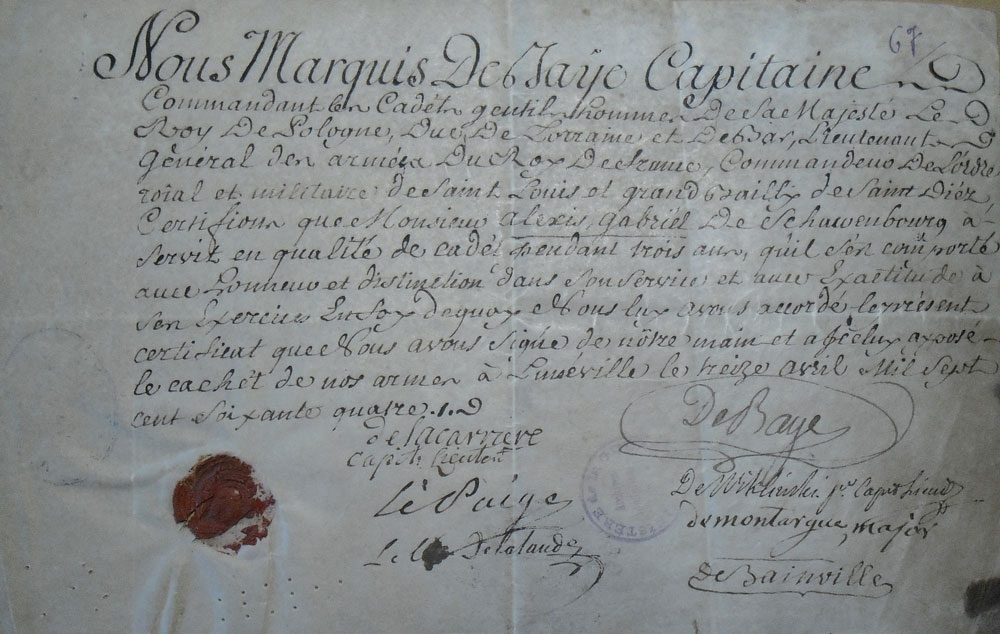 67
Nous Marquis De Baÿe Capitaine
Commandant les Cadets gentils hommes De Sa Majesté Le
Roy De Pologne, Duc De Lorraine et De Bar, Lieutenant
général des armées Du Roy De france, Commandeur De L'ordre
roial et militaire de Saint Louis et grand Bailly de Saint Diéz,
Certifions que Monsieur alexis, gabriel De Schawenbourg à
servit en qualité de cadet pendant trois ans, qu'il s'en comporté
avec honneur et distinction dans son service et avec Exactitude à
ses Exercices En foy dequoy Nous luy avons accordé le présent
certificat que Nous avons signé de nôtre main et a fceluy apposé
le cachét de nos armes à Lunéville le treize avril Mil Sept
cent Soixante quatre
DeBaye
de Lacarriere
capit. Lieuten.
De Wiklinski pr. Capit Lieut
le Paige
de montargue, major
Delalande
de Bainville